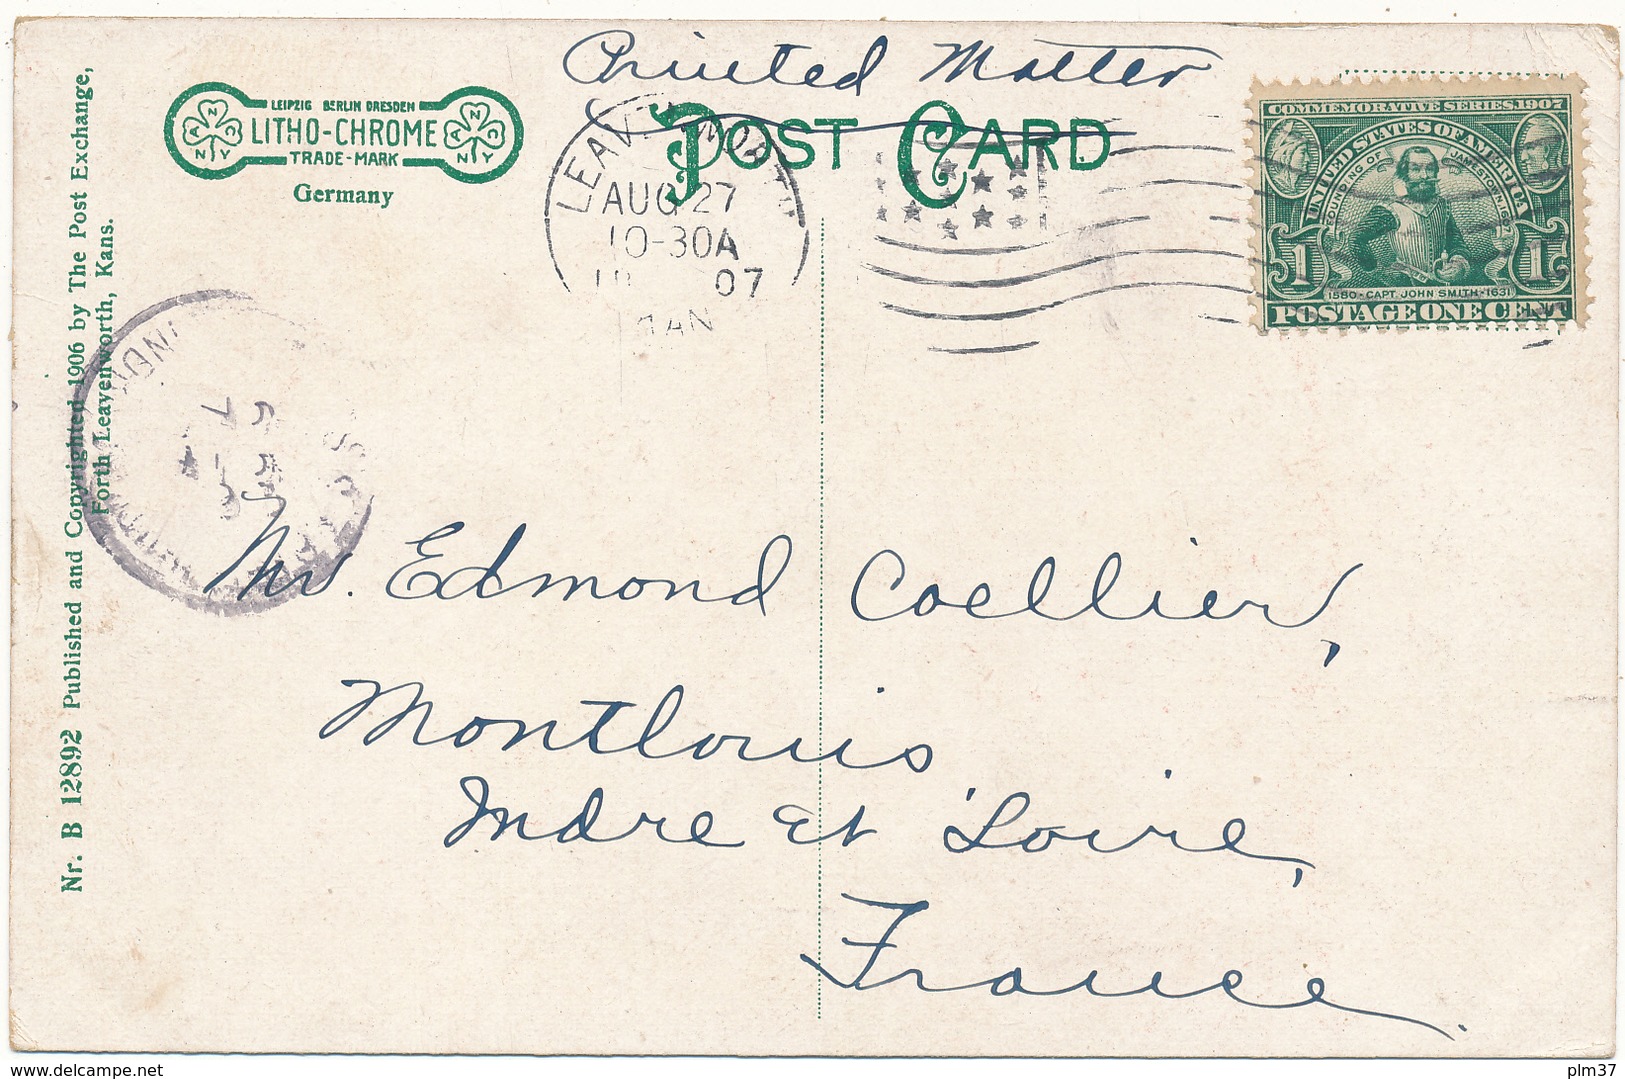 Printed Matter
POST CARD
LEIPZIG BERLIN DRESDEN
LITHO-CHROME
TRADE-MARK
Germany
ANCNY
ANCNY
AUG 27
10-30A
07
KAN
COMMEMORATIVE SERIES 1907
UNITED STATES OF AMERICA
FOUNDING OF JAMESTOWN, 1607
1 1
1580-CAPT. JOHN SMITH-1631
POSTAGE ONE CENT
Nr. B 12892 Published and Copyrighted 1906 by The Post Exchange,
Forth Leavenworth, Kans.
Mr. Edmond Coellier,
Montlouis
Indre et Loire,
France.
www.delcampe.net
plm37